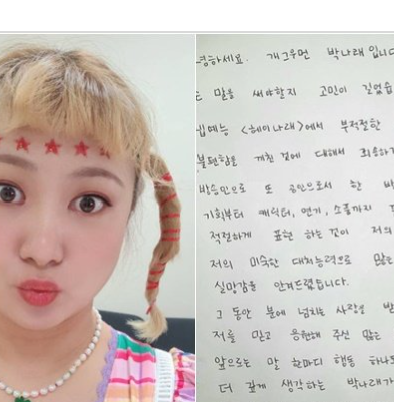 녕하세요. 개그우먼 박나래입니다
말을 써야할지 고민이 길었습
예능 <헤이나래>에서 부적절한
불편함을 끼친 것에 대해서 죄송하
방송인으로 또 공인으로서 한
기획부터 캐릭터, 연기, 소품까지
적절하게 표현 하는 것이 저의
저의 미숙한 대처능력으로 많은
실망감을 안겨드렸습니다.
그 동안 분에 넘치는 사랑을 받
저를 믿고 응원해 주신 많은
앞으로는 말 한마디 행동 하나
더 깊게 생각하는 박나래가